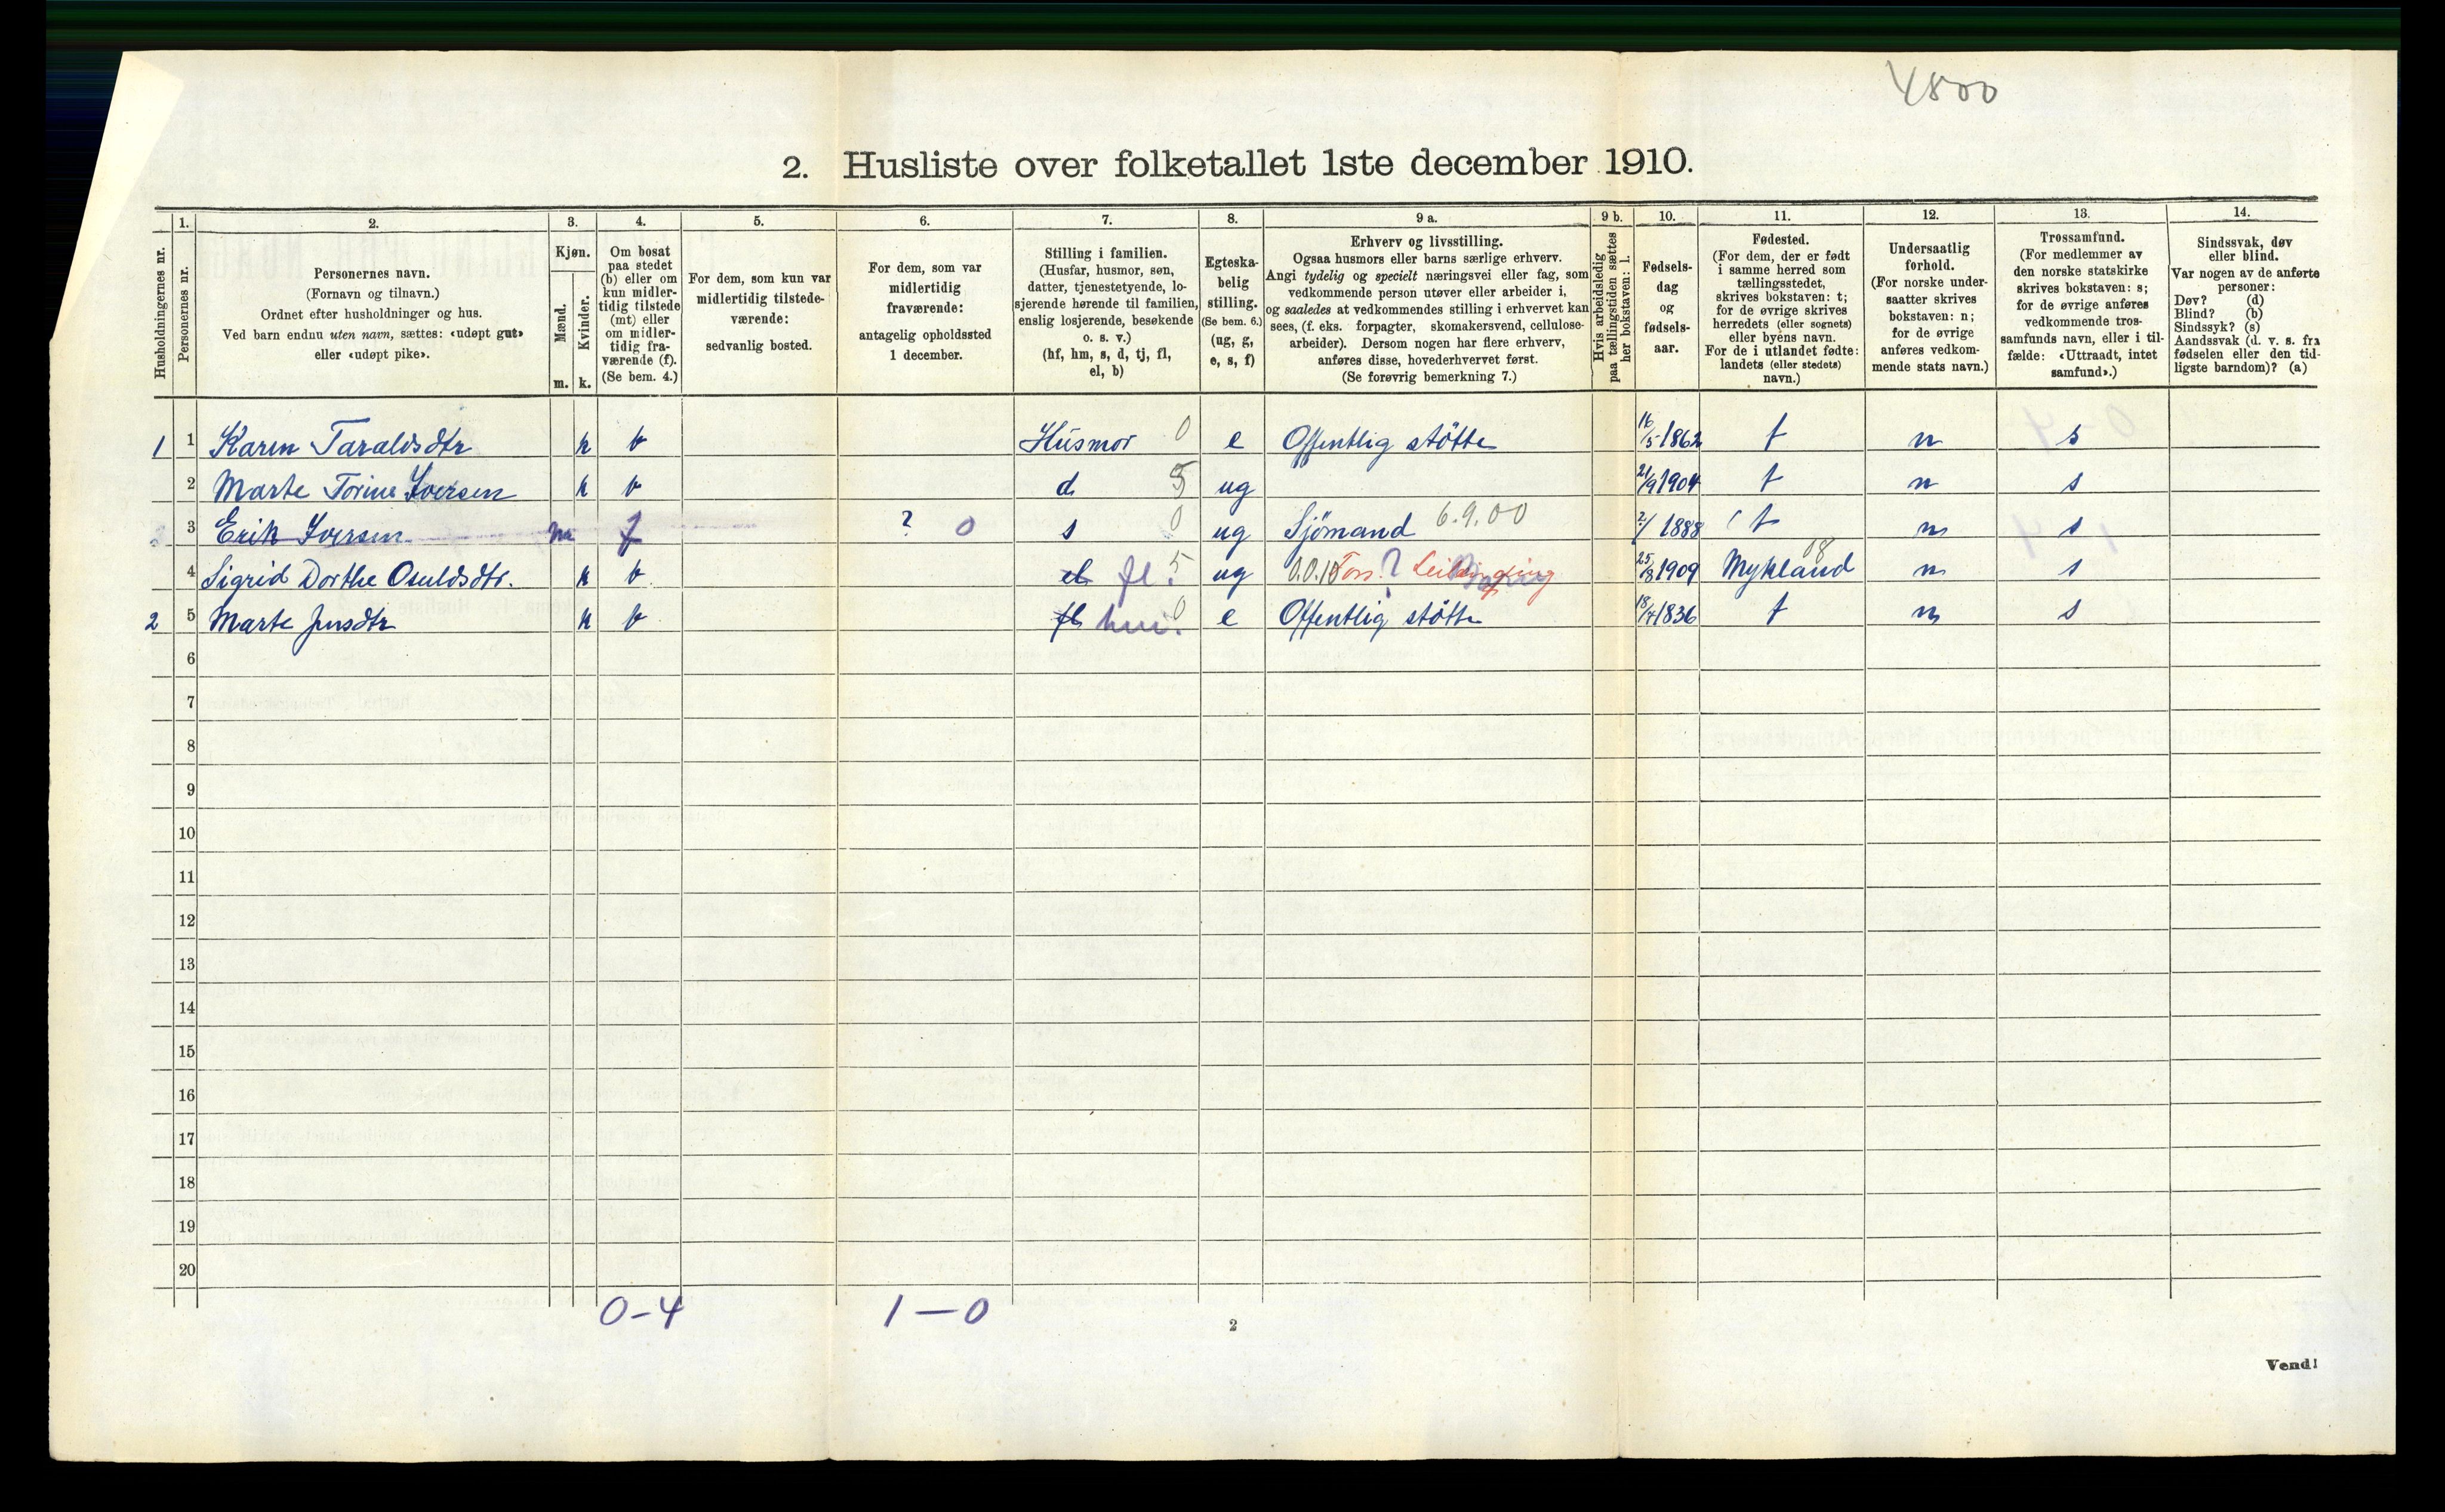 4800
2. Husliste over folketallet 1ste december 1910.
Husholdningernes nr.
1. Personernes nr.
2. Personernes navn.
(Fornavn og tilnavn.)
Ordnet efter husholdninger og hus.
Ved barn endnu uten navn, sættes: «udøpt gut»
eller «udøpt pike».
3. Kjøn.
Mænd. m.
Kvinder. k.
4. Om bosat
paa stedet
(b) eller om
kun midler-
tidig tilstede
(mt) eller
om midler-
tidig fra-
værende (f).
(Se bem. 4.)
5. For dem, som kun var
midlertidig tilstede-
værende:
sedvanlig bosted.
6. For dem, som var
midlertidig
fraværende:
antagelig opholdssted
1 december.
7. Stilling i familien.
(Husfar, husmor, søn,
datter, tjenestetyende, lo-
sjerende hørende til familien,
enslig losjerende, besøkende
o. s. v.)
(hf, hm, s, d, tj, fl,
el, b)
8. Egteska-
belig
stilling.
(Se bem. 6.)
(ug, g,
e, s, f)
9 a. Erhverv og livsstilling.
Ogsaa husmors eller barns særlige erhverv.
Angi tydelig og specielt næringsvei eller fag, som
vedkommende person utøver eller arbeider i,
og saaledes at vedkommendes stilling i erhvervet kan
sees, (f. eks. forpagter, skomakersvend, cellulose-
arbeider). Dersom nogen har flere erhverv,
anføres disse, hovederhvervet først.
(Se forøvrig bemerkning 7.)
9 b. Hvis arbeidsledig
paa tællingstiden sættes
her bokstaven: l.
10. Fødsels-
dag
og
fødsels-
aar.
11. Fødested.
(For dem, der er født
i samme herred som
tællingsstedet,
skrives bokstaven: t;
for de øvrige skrives
herredets (eller sognets)
eller byens navn.
For de i utlandet fødte:
landets (eller stedets)
navn.)
12. Undersaatlig
forhold.
(For norske under-
saatter skrives
bokstaven: n;
for de øvrige
anføres vedkom-
mende stats navn.)
13. Trossamfund.
(For medlemmer av
den norske statskirke
skrives bokstaven: s;
for de øvrige anføres
vedkommende tros-
samfunds navn, eller i til-
fælde: «Uttraadt, intet
samfund».)
14. Sindssvak, døv
eller blind.
Var nogen av de anførte
personer:
Døv? (d)
Blind? (b)
Sindssyk? (s)
Aandssvak (d. v. s. fra
fødselen eller den tid-
ligste barndom)? (a)
1 1 Karen Taraldsdtr k b Husmor 0 e Offentlig støtte 16/5 1862 t n s
2 Marte Torine Iversen k b d 5 ug 21/9 1904 t n s
3 Erik Iversen m f ? 0 s 0 ug Sjömand 6.9.00 2/ 1888 t n s
4 Sigrid Dorthe Osuldsdtr. k b el fl. 5 ug ? 25/8 1909 Mykland 08 n s
2 5 Marte Jensdtr k b fl hm. 0 e Offentlig støtte 18/4 1836 t n s
6
7
8
9
10
11
12
13
14
15
16
17
18
19
20
0-4 1-0
2
Vend!